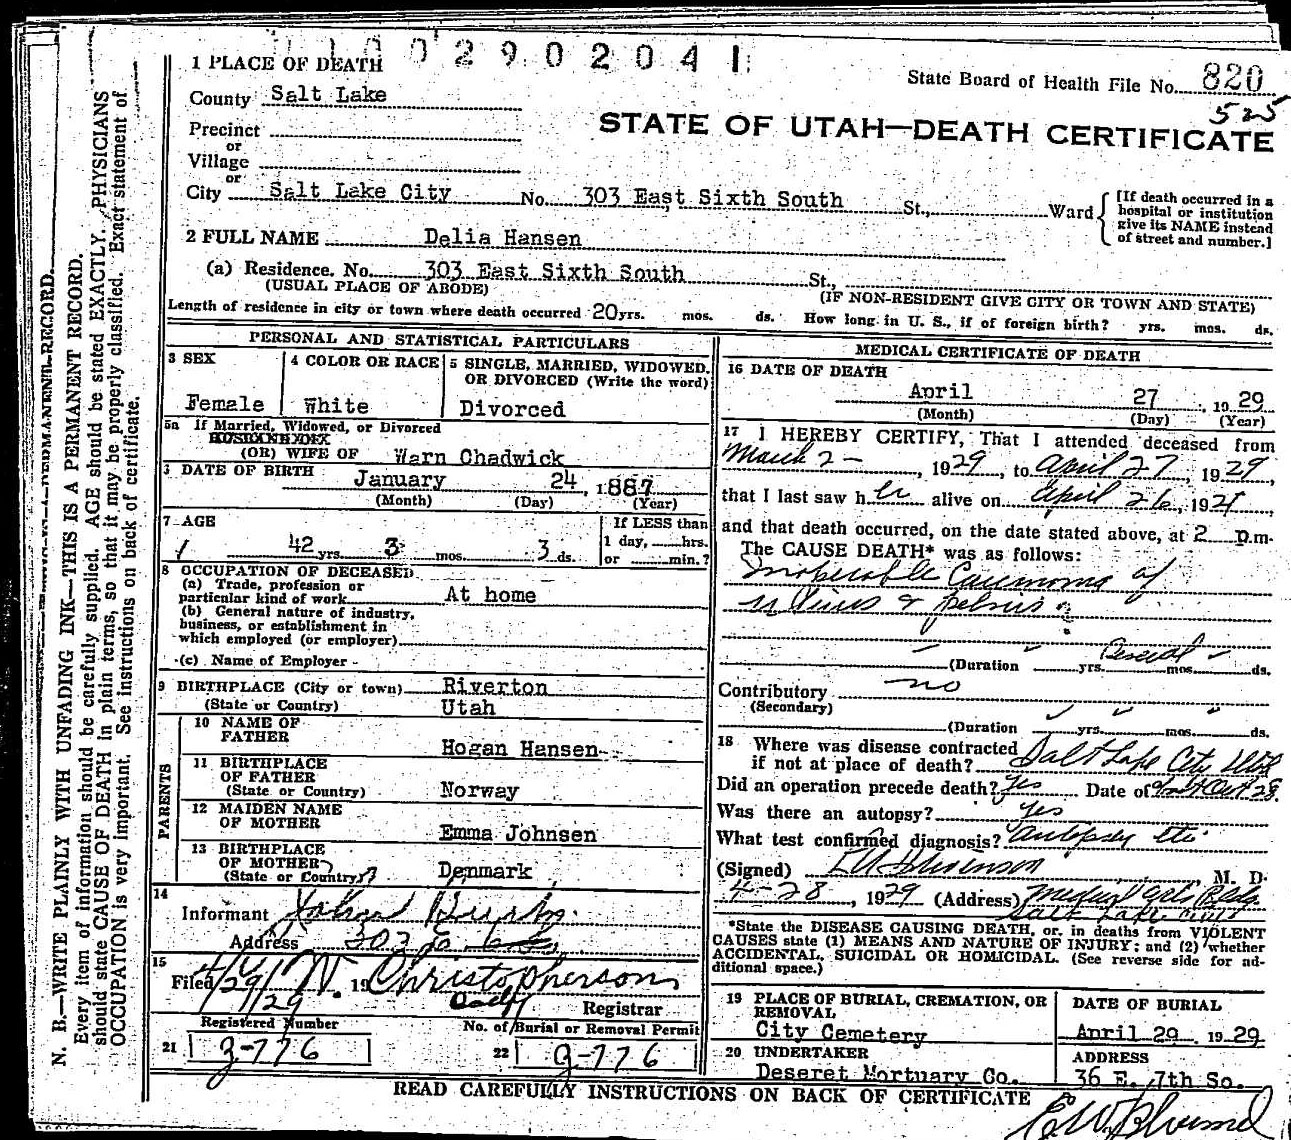 0 0 2 9 0 2 0 4 1
1 PLACE OF DEATH
State Board of Health File No. 820
525
County Salt Lake
STATE OF UTAH—DEATH CERTIFICATE
Precinct
or
Village
or
City Salt Lake City No. 303 East Sixth South St., Ward
[If death occurred in a
hospital or institution
give its NAME instead
of street and number.]
2 FULL NAME Delia Hansen
(a) Residence. No. 303 East Sixth South St.,
(USUAL PLACE OF ABODE)
(IF NON-RESIDENT GIVE CITY OR TOWN AND STATE)
Length of residence in city or town where death occurred 20 yrs. mos. ds. How long in U. S., if of foreign birth? yrs. mos. ds.
PERSONAL AND STATISTICAL PARTICULARS
3 SEX
Female
4 COLOR OR RACE
White
5 SINGLE, MARRIED, WIDOWED,
OR DIVORCED (Write the word)
Divorced
5a If Married, Widowed, or Divorced
(OR) WIFE OF Warn Chadwick
DATE OF BIRTH
January 24, 1887
(Month) (Day) (Year)
7 AGE
42 yrs. 3 mos. 3 ds.
If LESS than
1 day, hrs.
or min.?
8 OCCUPATION OF DECEASED
(a) Trade, profession or
particular kind of work At home
(b) General nature of industry,
business, or establishment in
which employed (or employer)
(c) Name of Employer
9 BIRTHPLACE (City or town) Riverton
(State or Country) Utah
PARENTS
10 NAME OF
FATHER
Hogan Hansen
11 BIRTHPLACE
OF FATHER
(State or Country) Norway
12 MAIDEN NAME
OF MOTHER
Emma Johnsen
13 BIRTHPLACE
OF MOTHER
(State or Country) Denmark
14
Informant
Address 303 E. 6
15
Filed 4/29/29 19 Christopherson
Registrar
Registered Number
21 g-776
No. of Burial or Removal Permit
22 g-776
MEDICAL CERTIFICATE OF DEATH
16 DATE OF DEATH
April 27, 1929
(Month) (Day) (Year)
17 I HEREBY CERTIFY, That I attended deceased from
March 2-, 1929, to April 27, 1929,
that I last saw her alive on April 26, 192
and that death occurred, on the date stated above, at 2 p.m.
The CAUSE DEATH* was as follows:
Inoperable Carcinoma of
uterus & pelvis
(Duration yrs. Several mos. ds.
Contributory no
(Secondary)
(Duration yrs. mos. ds.
18 Where was disease contracted
if not at place of death? Salt Lake City Utah
Did an operation precede death? yes Date of Oct 28.
Was there an autopsy? yes
What test confirmed diagnosis? autopsy etc
(Signed) Stevenson M. D.
4-28, 1929 (Address) Medical Arts Bldg.
Salt Lake City
*State the DISEASE CAUSING DEATH, or, in deaths from VIOLENT
CAUSES state (1) MEANS AND NATURE OF INJURY; and (2) whether
ACCIDENTAL, SUICIDAL OR HOMICIDAL. (See reverse side for ad-
ditional space.)
19 PLACE OF BURIAL, CREMATION, OR
REMOVAL
City Cemetery
DATE OF BURIAL
April 29, 1929
20 UNDERTAKER
Deseret Mortuary Co.
ADDRESS
36 E. 7th So.
READ CAREFULLY INSTRUCTIONS ON BACK OF CERTIFICATE
N. B.—WRITE PLAINLY WITH UNFADING INK—THIS IS A PERMANENT RECORD.
Every item of information should be carefully supplied. AGE should be stated EXACTLY. PHYSICIANS
should state CAUSE OF DEATH in plain terms, so that it may be properly classified. Exact statement of
OCCUPATION is very important. See instructions on back of certificate.